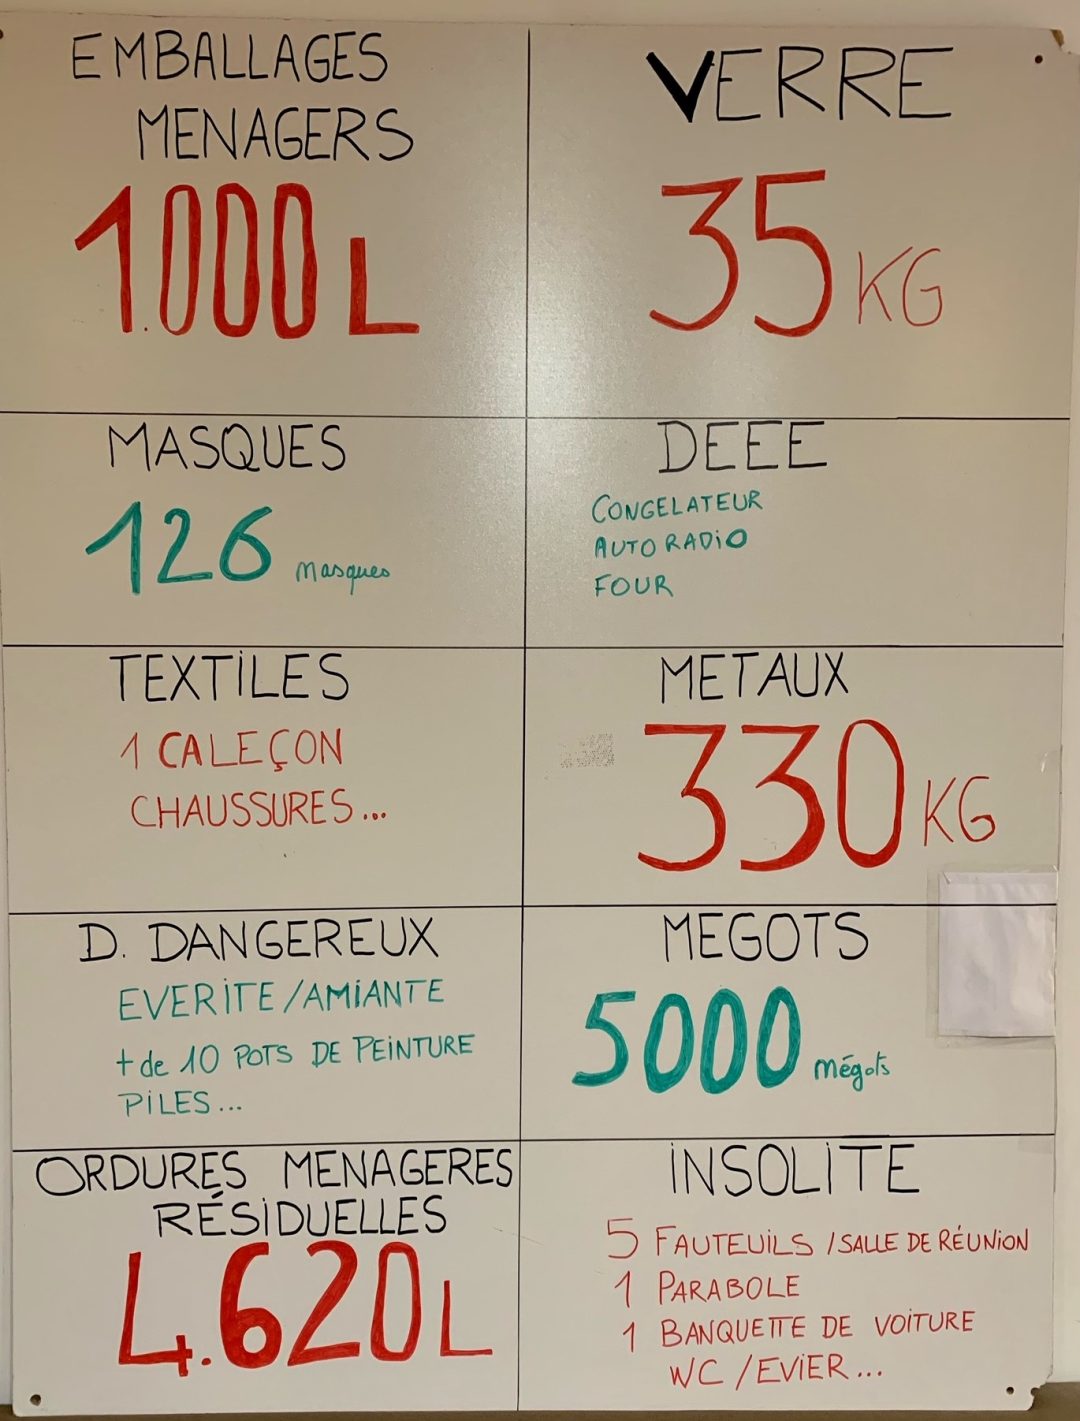 EMBALLAGES
MENAGERS
1.000 L
VERRE
35 KG
MASQUES
126 masques
DEEE
CONGELATEUR
AUTO RADIO
FOUR
TEXTILES
1 CALEÇON
CHAUSSURES...
METAUX
330 KG
D. DANGEREUX
EVERITE/AMIANTE
+ de 10 POTS DE PEINTURE
PILES...
MEGOTS
5000 mégots
ORDURES MENAGERES
RÉSIDUELLES
4.620 L
INSOLITE
5 FAUTEUILS /SALLE DE RÉUNION
1 PARABOLE
1 BANQUETTE DE VOITURE
WC /EVIER...